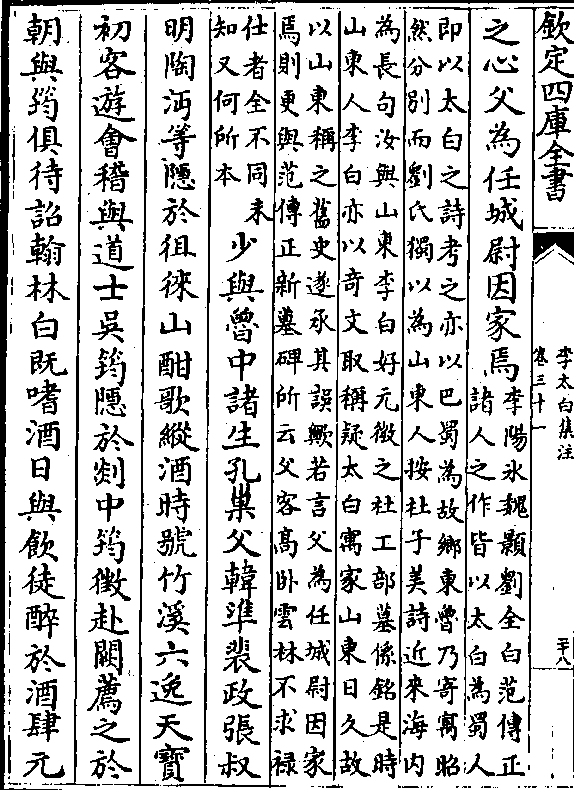 欽定四庫全書
李太白集注
卷三十一
二十八
之心父為任城尉因家焉
李陽氷魏顥劉全白范傳正
諸人之作皆以太白為蜀人
即以太白之詩考之亦以巴蜀為故鄉東魯乃寄寓昭
然分别而劉氏獨以為山東人按杜子美詩近來海内
為長句汝與山東李白好元微之杜工部墓係銘是時
山東人李白亦以奇文取稱疑太白寓家山東日久故
以山東稱之舊史遂承其誤歟若言父為任城尉因家
焉則更與范傳正新墓碑所云父客高卧雲林不求禄
仕者全不同未
知又何所本
少與魯中諸生孔巢父韓準裴政張叔
明陶沔等隱於徂徠山酣歌縱酒時號竹溪六逸天寶
初客遊會稽與道士吳筠隱於剡中筠徵赴闕薦之於
朝與筠俱待詔翰林白既嗜酒日與飲徒醉於酒肆元